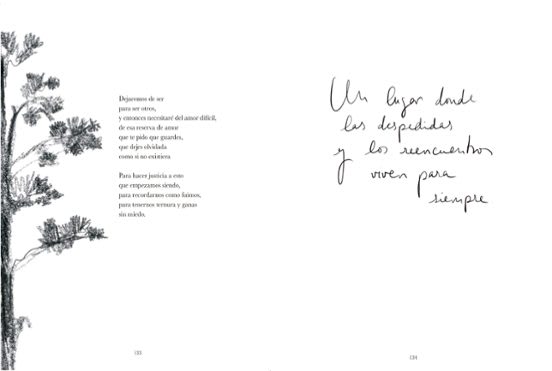 Dejaremos de ser
para ser otros,
y entonces necesitaré del amor difícil,
de esa reserva de amor
que te pido que guardes,
que dejes olvidada
como si no existiera
Para hacer justicia a esto
que empezamos siendo,
para recordarnos como fuimos,
para tenernos ternura y ganas
sin miedo.
133
Un lugar donde
las despedidas
y los reencuentros
viven para
siempre
134